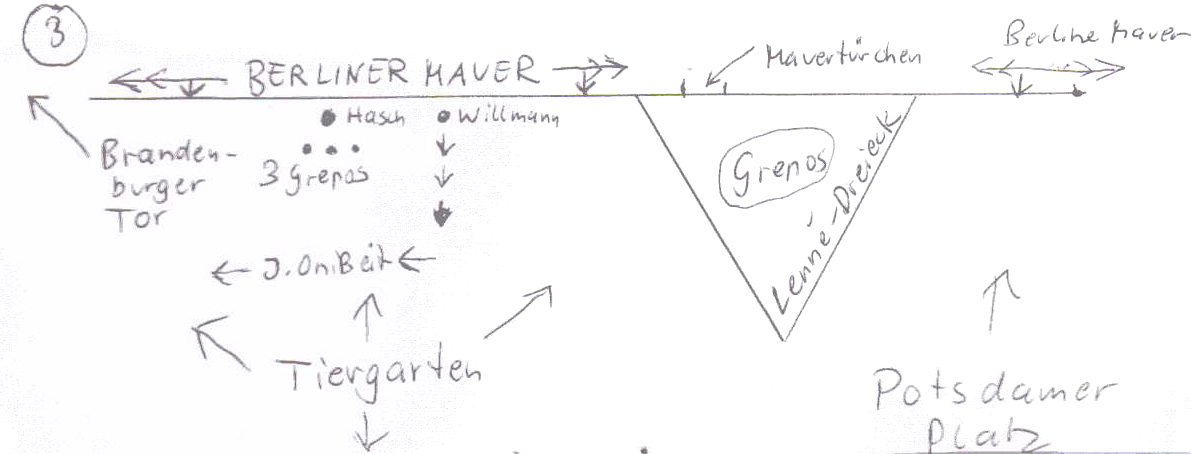 3
BERLINER MAUER
Mauertürchen
Berline Mauer
Hasch
Willmann
Branden-
burger
Tor
3 Grepos
Grepos
Lenné-Dreieck
J.On.Beit
Tiergarten
Potsdamer
Platz